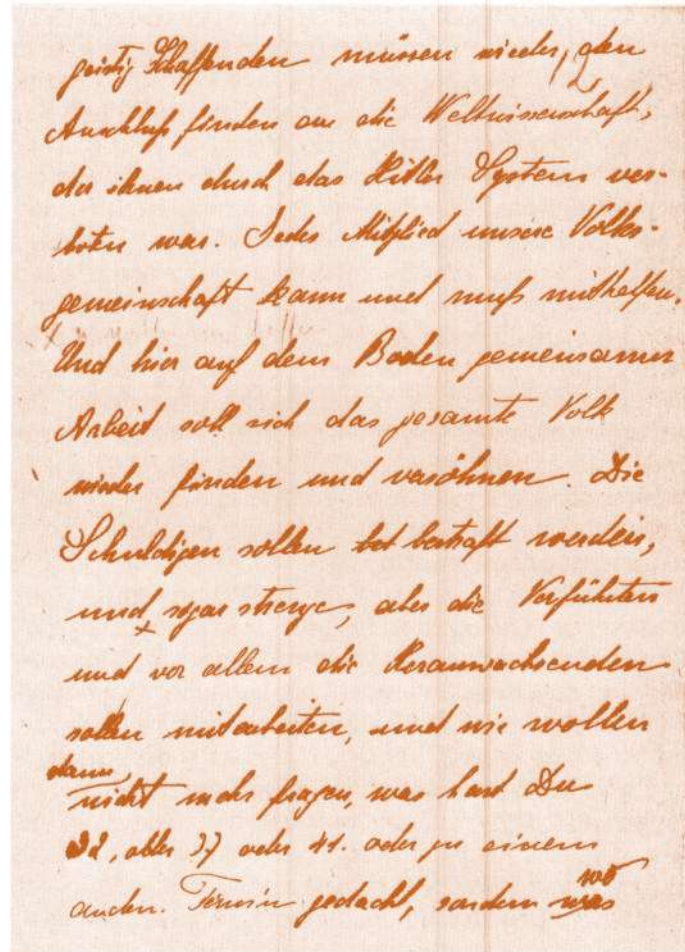 geistig Schaffenden müssen wieder, den
Anschluß finden an die Weltwissenschaft,
der ihnen durch das Hitler System ver-
boten war. Jedes Mitglied unsere Volks-
gemeinschaft kann und muß mithelfen.
Und hier auf dem Boden gemeinsamer
Arbeit soll sich das gesamte Volk
wieder finden und versöhnen. Die
Schuldigen sollen bestraft werden,
und sogar strenge, aber die Verführten
und vor allem die Heranwachsenden
sollen mitarbeiten, und wir wollen
dann
nicht mehr fragen, was hast Du
32, oder 37 oder 41. oder zu einem
anden. Termin gedacht, sondern was
wo